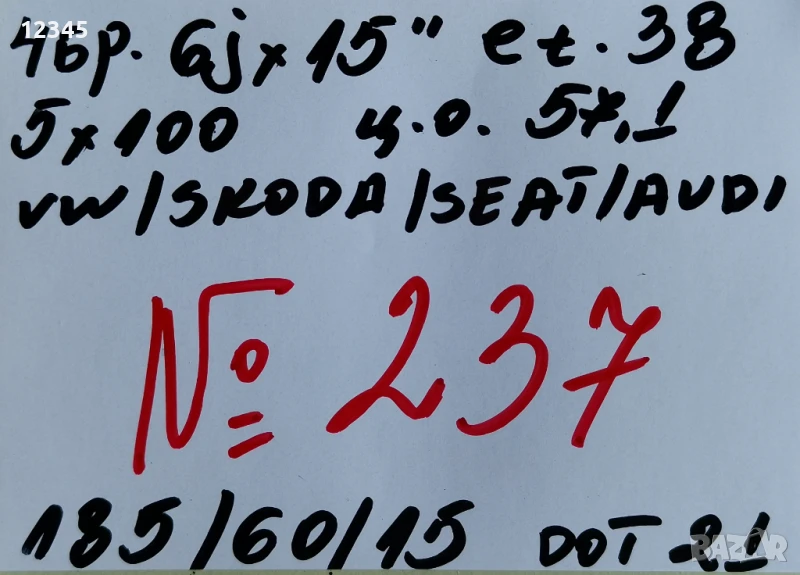 12345
4бр. 6jx15" et. 38
5x100 ц.о. 57,1
VW/SKODA/SEAT/AUDI
№ 237
185/60/15 DOT 21
BAZAR